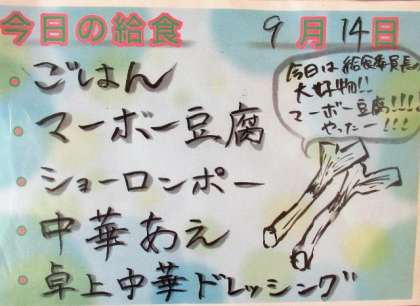 今日の給食 9月14日
・ごはん
・マーボー豆腐
・ショーロンポー
・中華あえ
・卓上中華ドレッシング
今日は給食委員長の
大好物!!
マーボー豆腐!!!!
やったー!!!